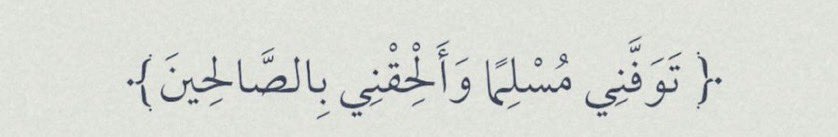 ﴿ تَوَفَّنِي مُسْلِمًا وَأَلْحِقْنِي بِالصَّالِحِينَ ﴾